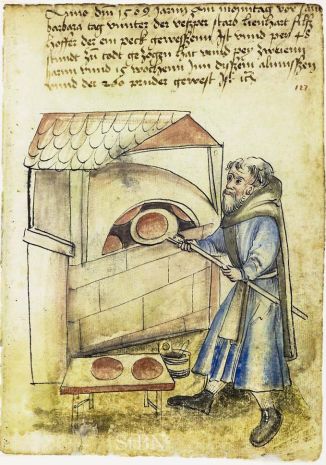 Anno dm 1509 Jarm am montag vor sant
barbara tag vnnter der vesper starb lienhart
hoffer der ein peck gewessenn Ist vnnd pey 48
stundt zu todt gezogen hat vnnd pey zweienn
Jarnn vnnd 15 wochenn Inn dyssem almussenn
vnnd der 260 pruder gewest Ist
117
StBN